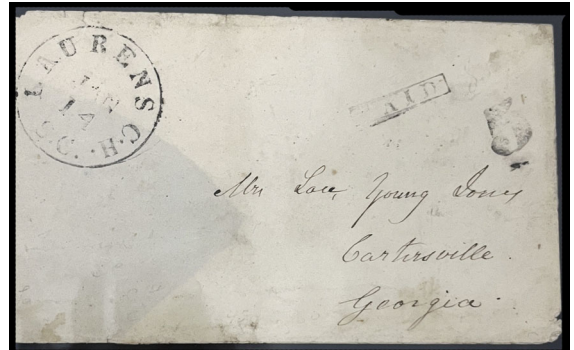 LAURENS C.H. S.C.
JAN
14
PAID
Mrs Lou Young Jones
Cartersville.
Georgia.